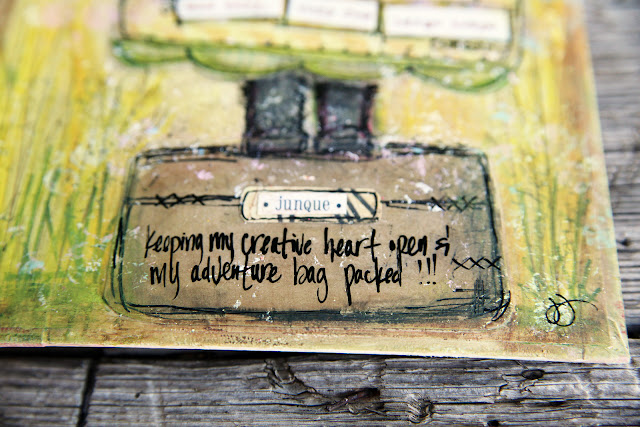 • junque •
keeping my creative heart open &
my adventure bag packed !!!